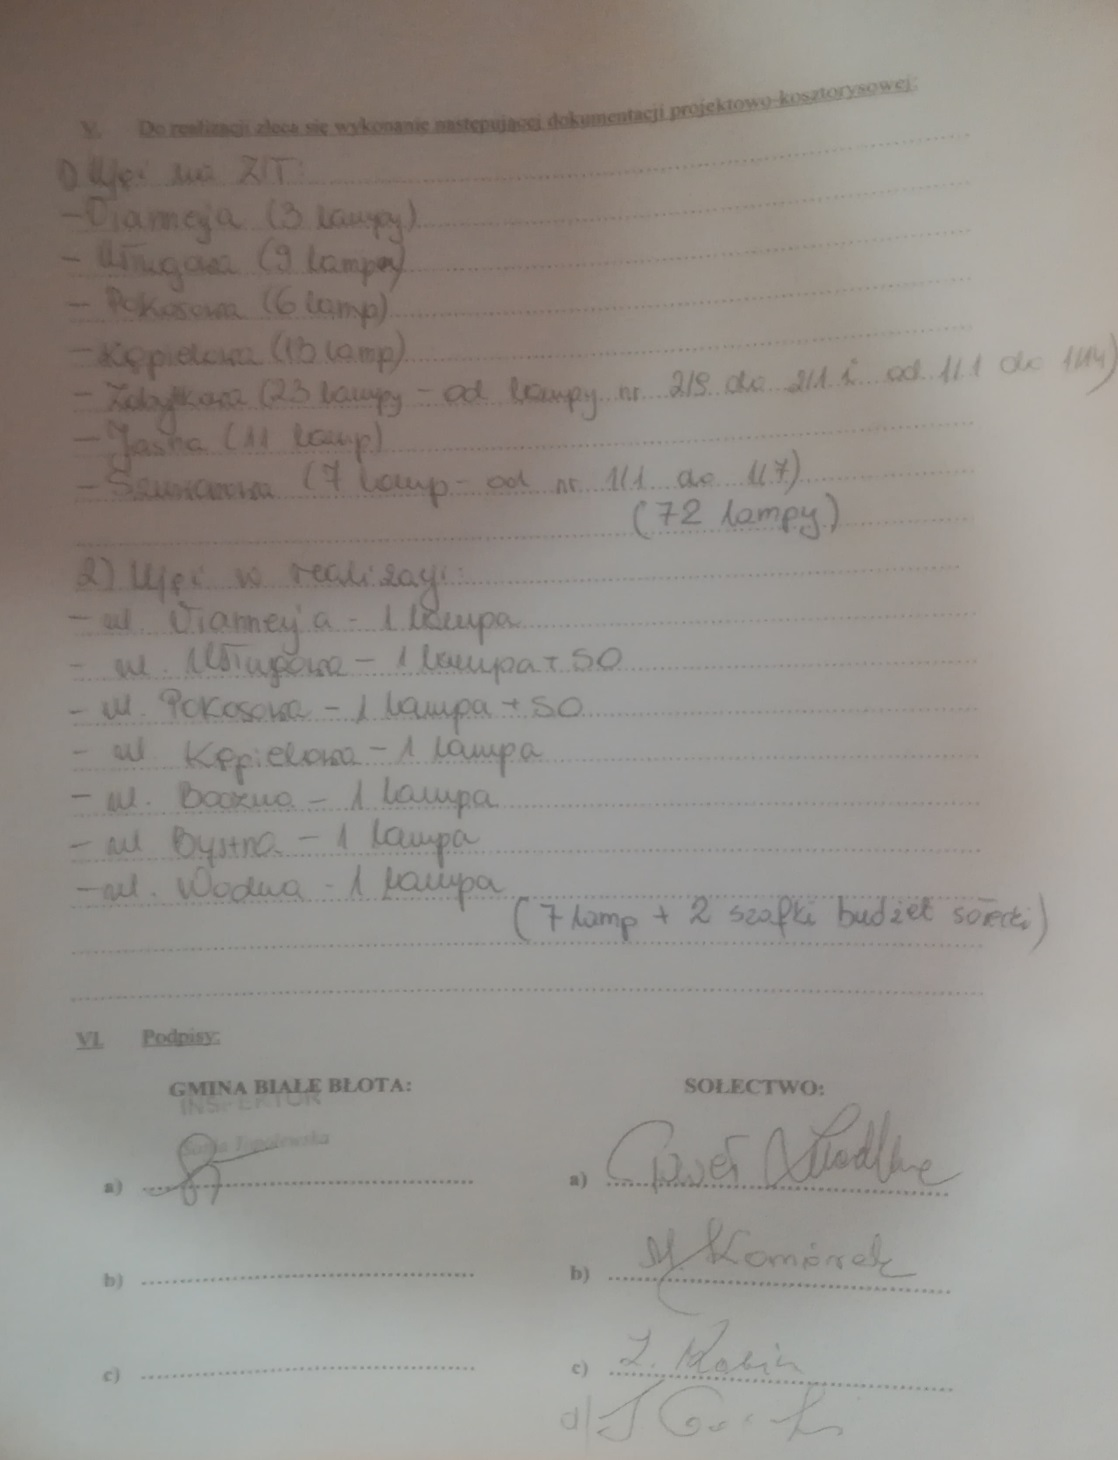 V. Do realizacji zleca się wykonanie następującej dokumentacji projektowo-kosztorysowej:
1) Ująć ZIT:
- Vianneya (3 lampy)
- (9 lamp)
- Pokosowa (6 lamp)
- Kąpielowa (13 lamp)
- Zabytkowa (23 lampy - od lampy nr 2/9 do 2/1 i od 1/1 do 1/14)
- Jasna (11 lamp)
- Szuwarowa (7 lamp - od nr 1/1 do 1/7)
(72 lampy)
2) Ująć w realizacji:
- ul. Vianney'a - 1 lampa
- ul. - 1 lampa + SO
- ul. Pokosowa - 1 lampa + SO
- ul. Kąpielowa - 1 lampa
- ul. Boczna - 1 lampa
- ul. Bystra - 1 lampa
- ul. Wodna - 1 lampa
(7 lamp + 2 szafki budżet sołecki)
VI. Podpisy:
GMINA BIAŁE BŁOTA:
SOŁECTWO:
INSPEKTOR
a)
a) Paweł
b)
b) M. Komórek
c)
c)
d)